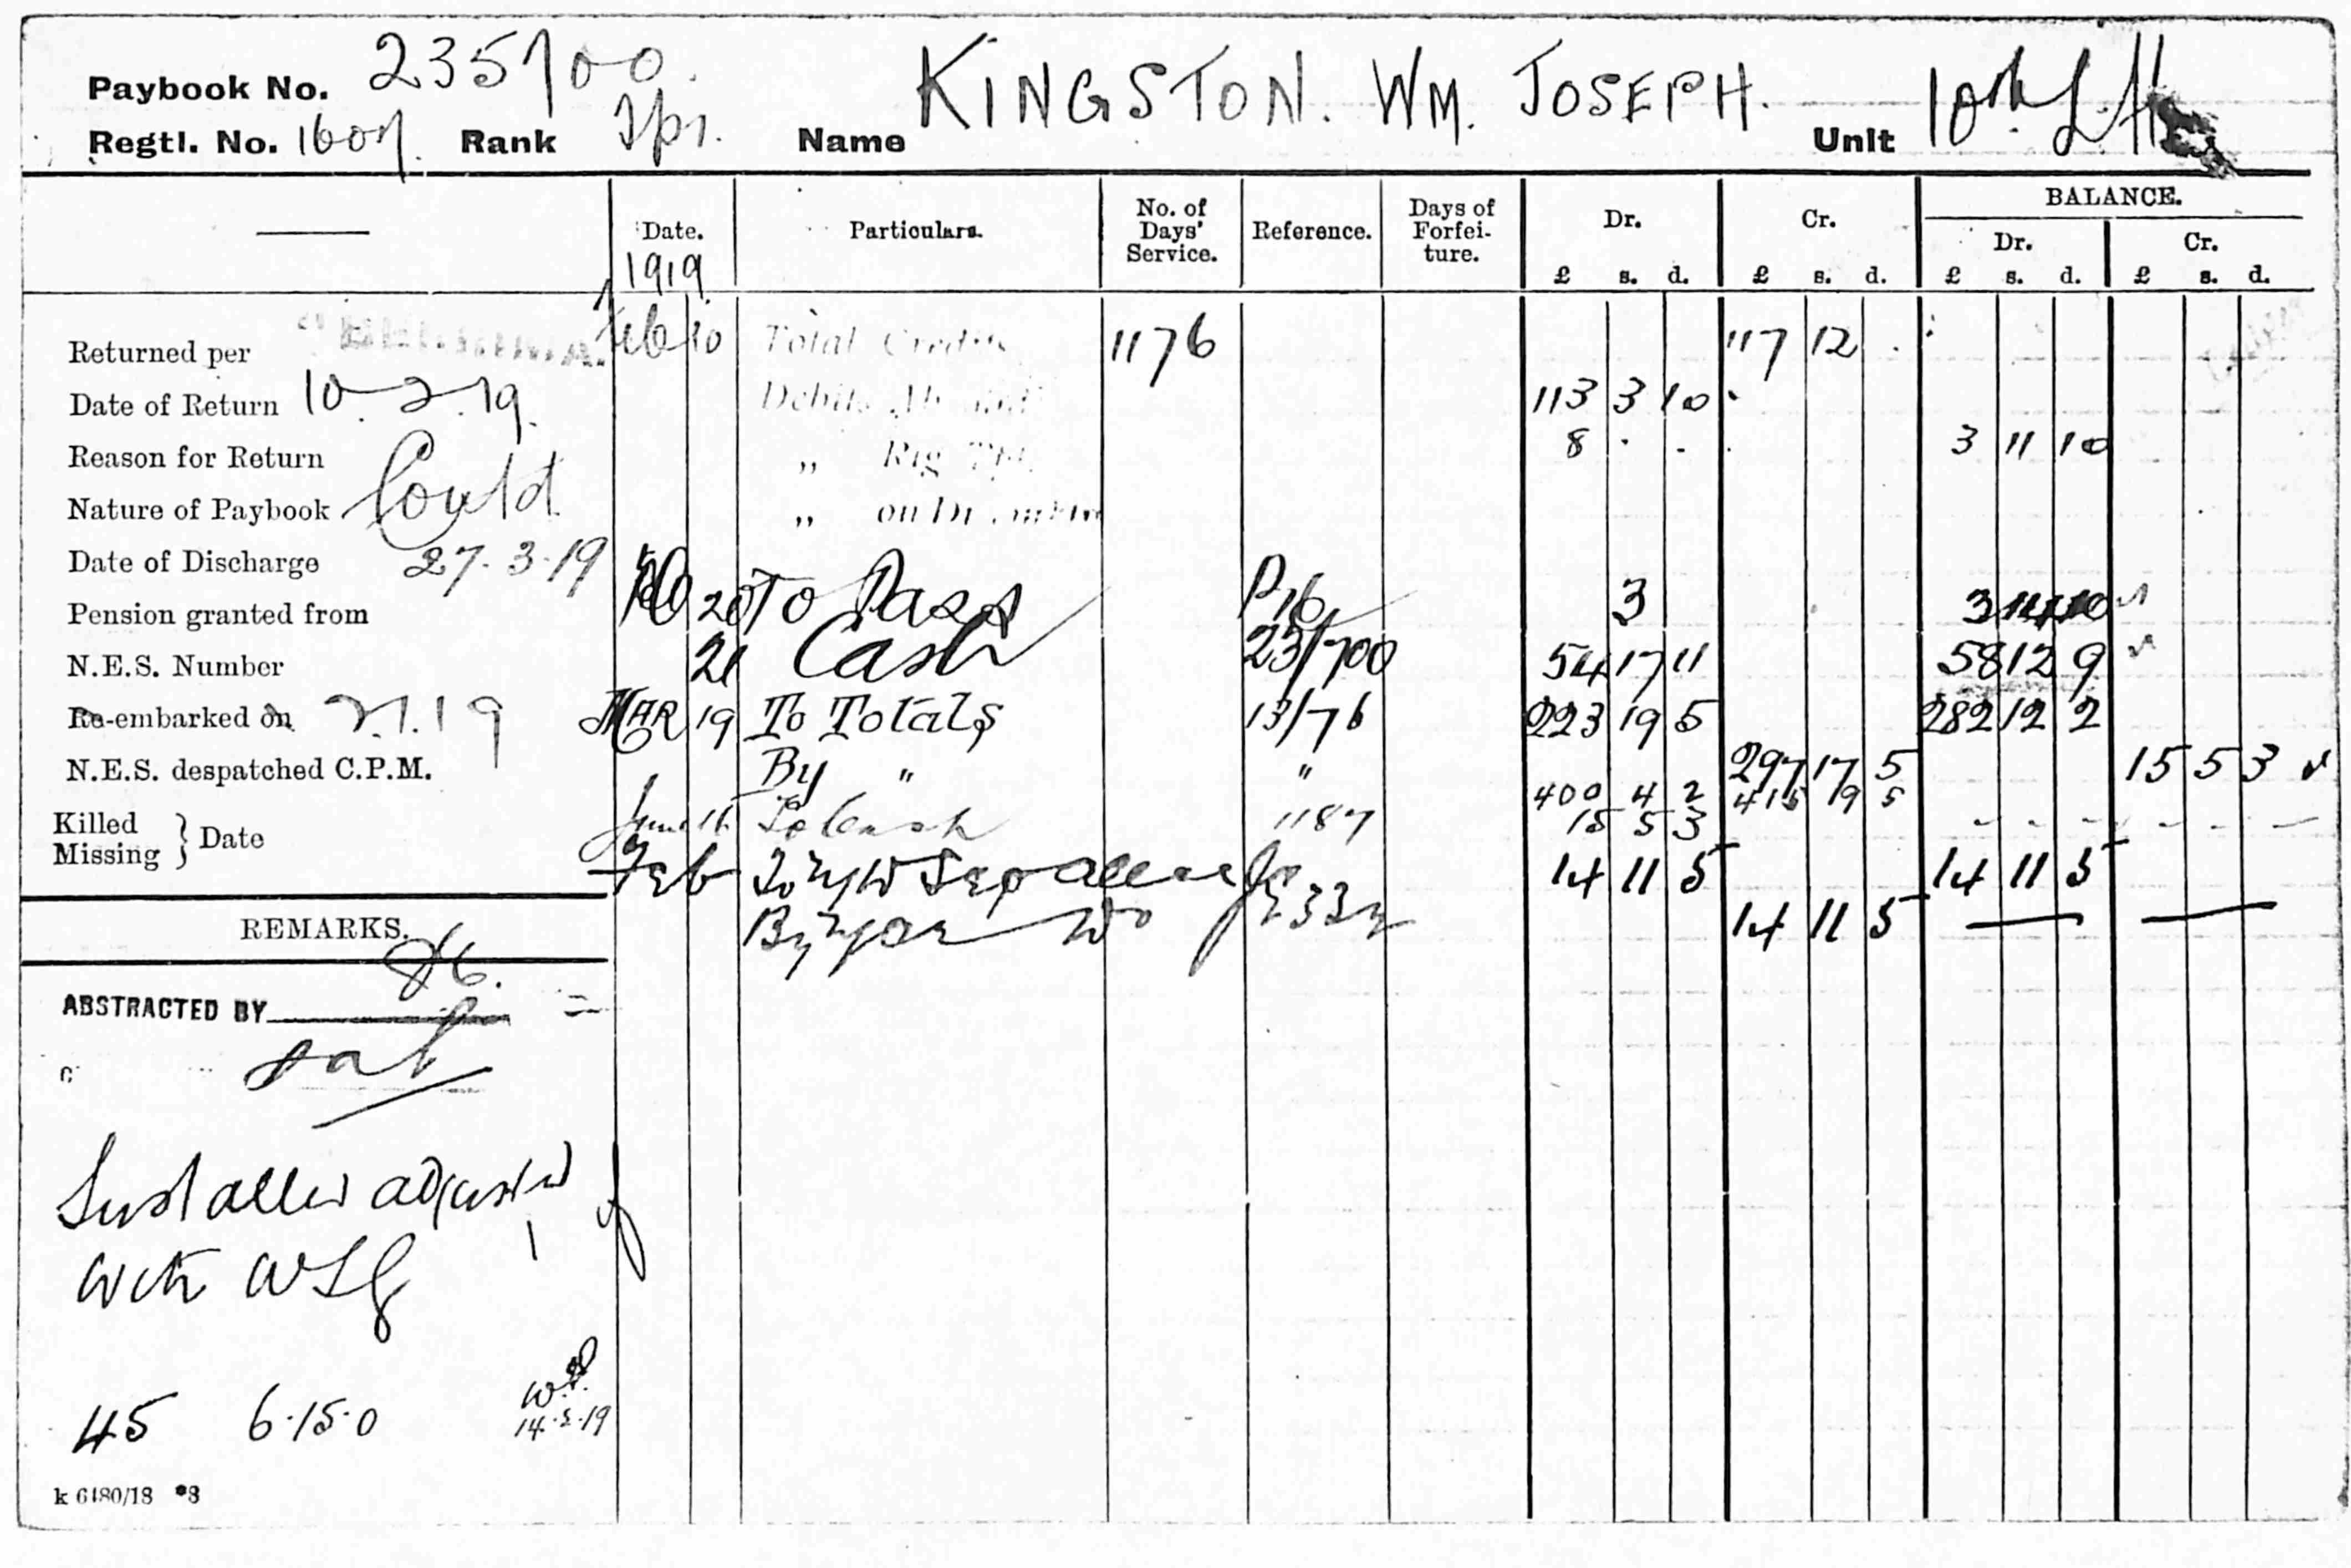 Paybook No. 235700.
Regtl. No. 1607. Rank Tpr. Name KINGSTON. WM. JOSEPH. Unit 10th L.H.
Date. Particulars. No. of Days' Service. Reference. Days of Forfei-ture. Dr. £ s. d. Cr. £ s. d. BALANCE. Dr. £ s. d. Cr. £ s. d.
1919
Returned per
Feb 10 Total Credits 1176 117 12
Date of Return 10.2.19.
Debits Abroad 113 3 10
Reason for Return
„ 8 . - 3 11 10
Nature of Paybook
„ on
Date of Discharge 27.3.19
20 To Pass P16 3 3 14 10
Pension granted from
21 Cash 23/700 54 17 11 58 12 9
N.E.S. Number
Re-embarked on 2.1.19
MAR 19 To Totals 13/76 223 19 5 282 12 2
N.E.S. despatched C.P.M.
By " " 297 17 5 15 5 3
400 4 2 415 19 5
Killed
Missing } Date
June 16 To Cash 1187 15 5 3
Feb 14 11 5 14 11 5
By 14 11 5
REMARKS.
ABSTRACTED BY
Sust allce adjusted
with
45 6.15.0
k 6480/18 *3